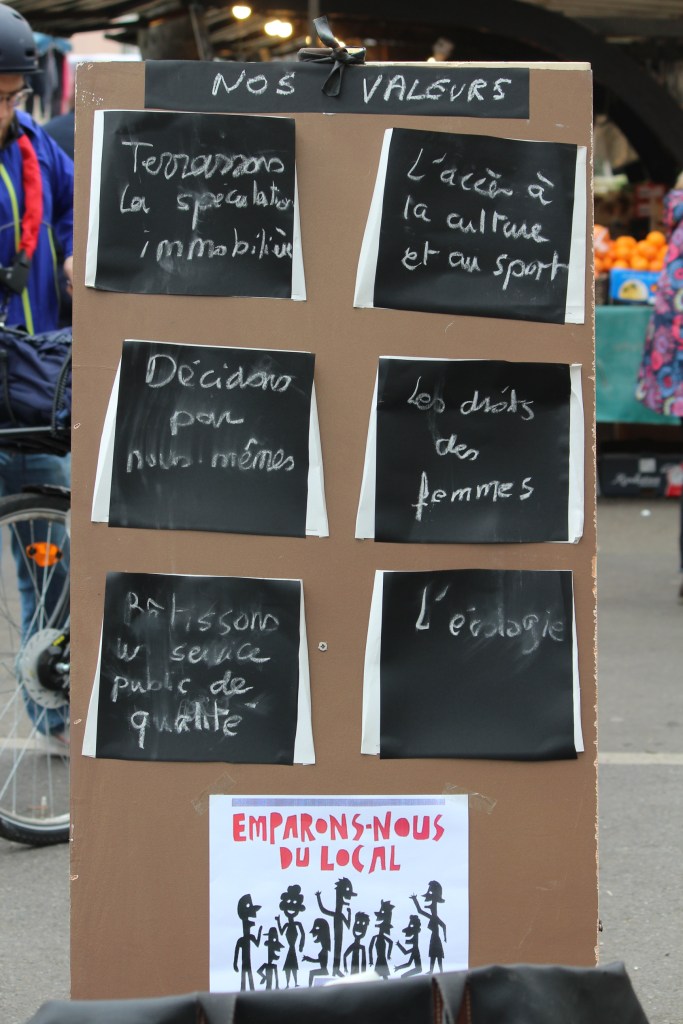 NOS VALEURS
Terrassons
la spéculation
immobilière
L'accès à
la culture
et au sport
Décidons
par
nous-mêmes
Les droits
des
femmes
Bâtissons
un service
public de
qualité
L'écologie
EMPARONS-NOUS
DU LOCAL